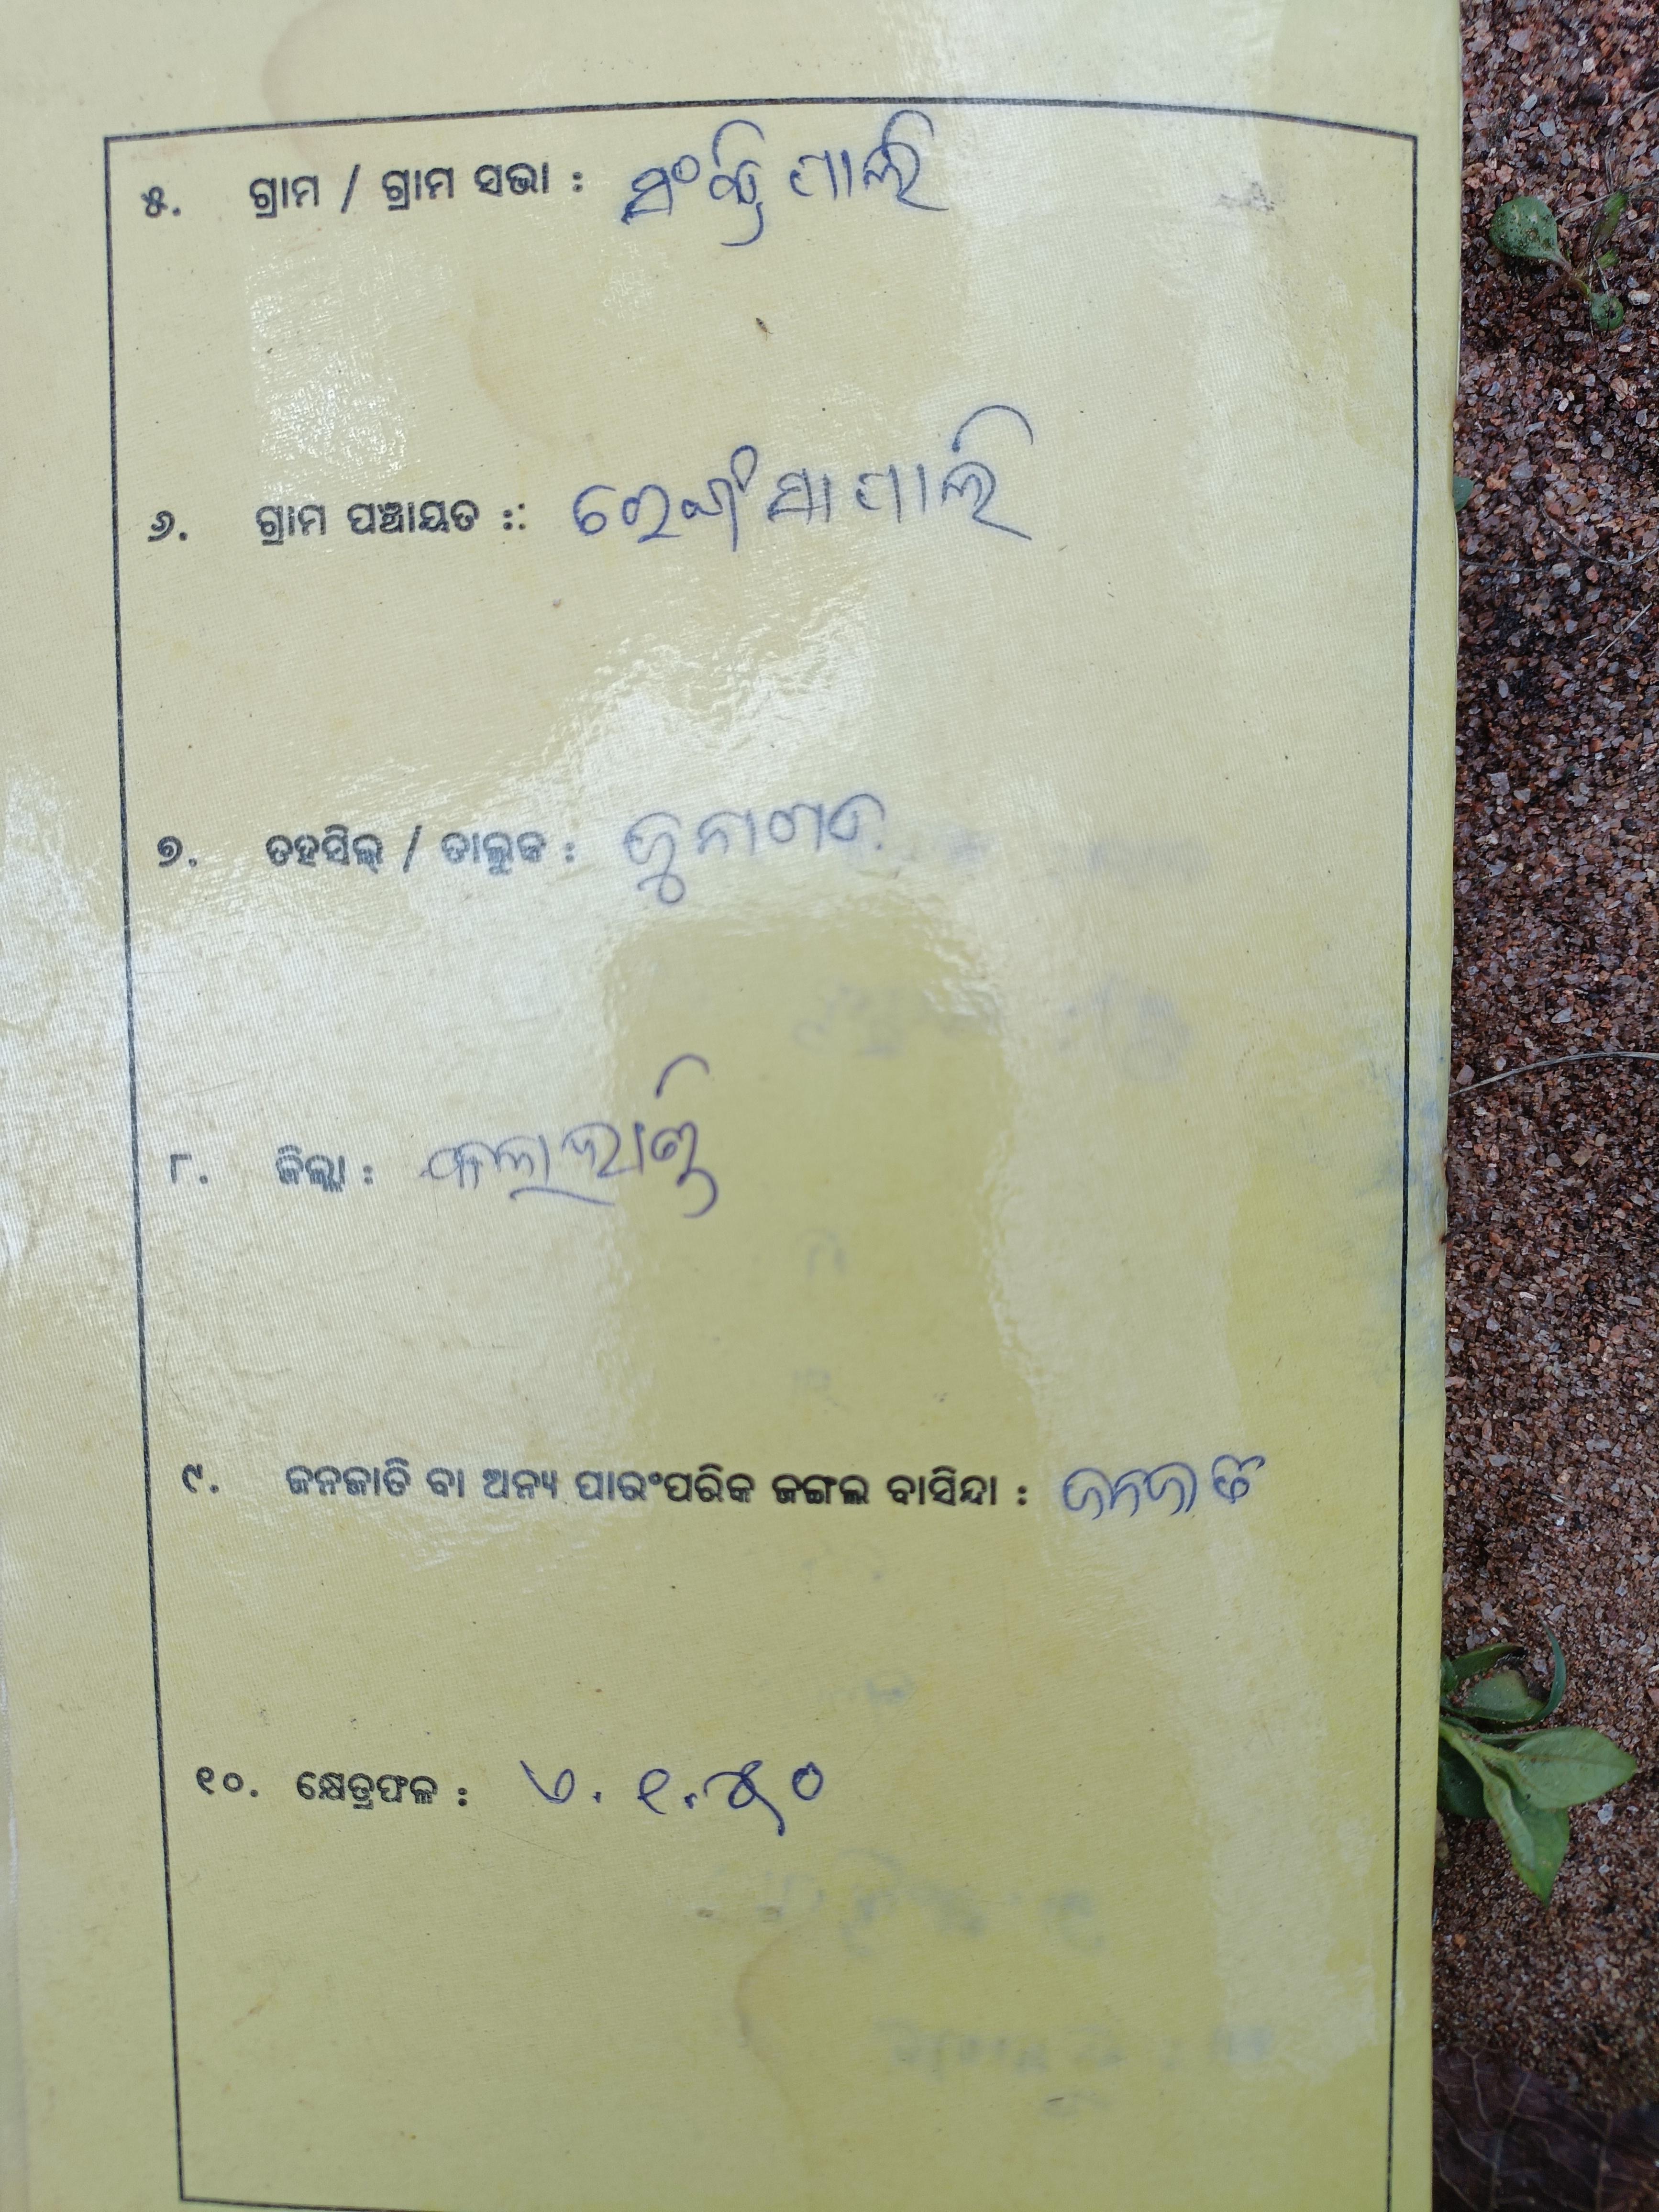 ୫. ଗ୍ରାମ / ଗ୍ରାମ ସଭା : ପାଲି
୬. ଗ୍ରାମ ପଞ୍ଚାୟତ :: ପାଲି
୭. ତହସିଲ୍ / ତାଲୁକ : ଜୁନାଗଡ
୮. ଜିଲ୍ଲା : କଳାହାଣ୍ଡି
୯. ଜନଜାତି ବା ଅନ୍ୟ ପାରଂପରିକ ଜଙ୍ଗଲ ବାସିନ୍ଦା : ଜନଜାତି
୧୦. କ୍ଷେତ୍ରଫଳ : ୬.୧.୫୦